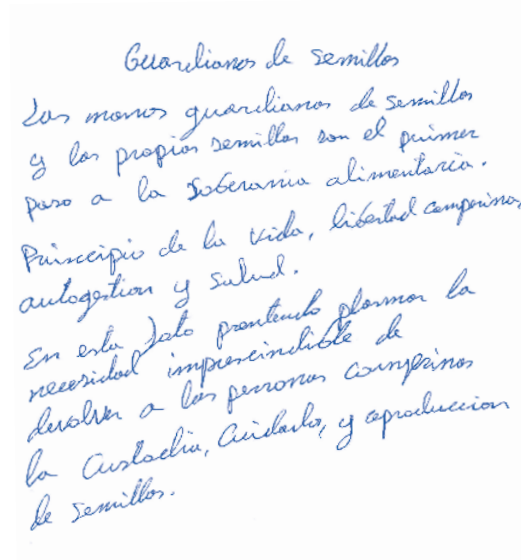 Guardianas de semillas
Las manos guardianas de semillas
y las propias semillas son el primer
paso a la Soberania alimentaria.
Principio de la vida, libertad campesina,
autogestion y salud.
En esta foto pretendo plasmar la
necesidad imprescindible de
devolver a las personas campesinas
la Custodia, Cuidado, y reproduccion
de semillas.